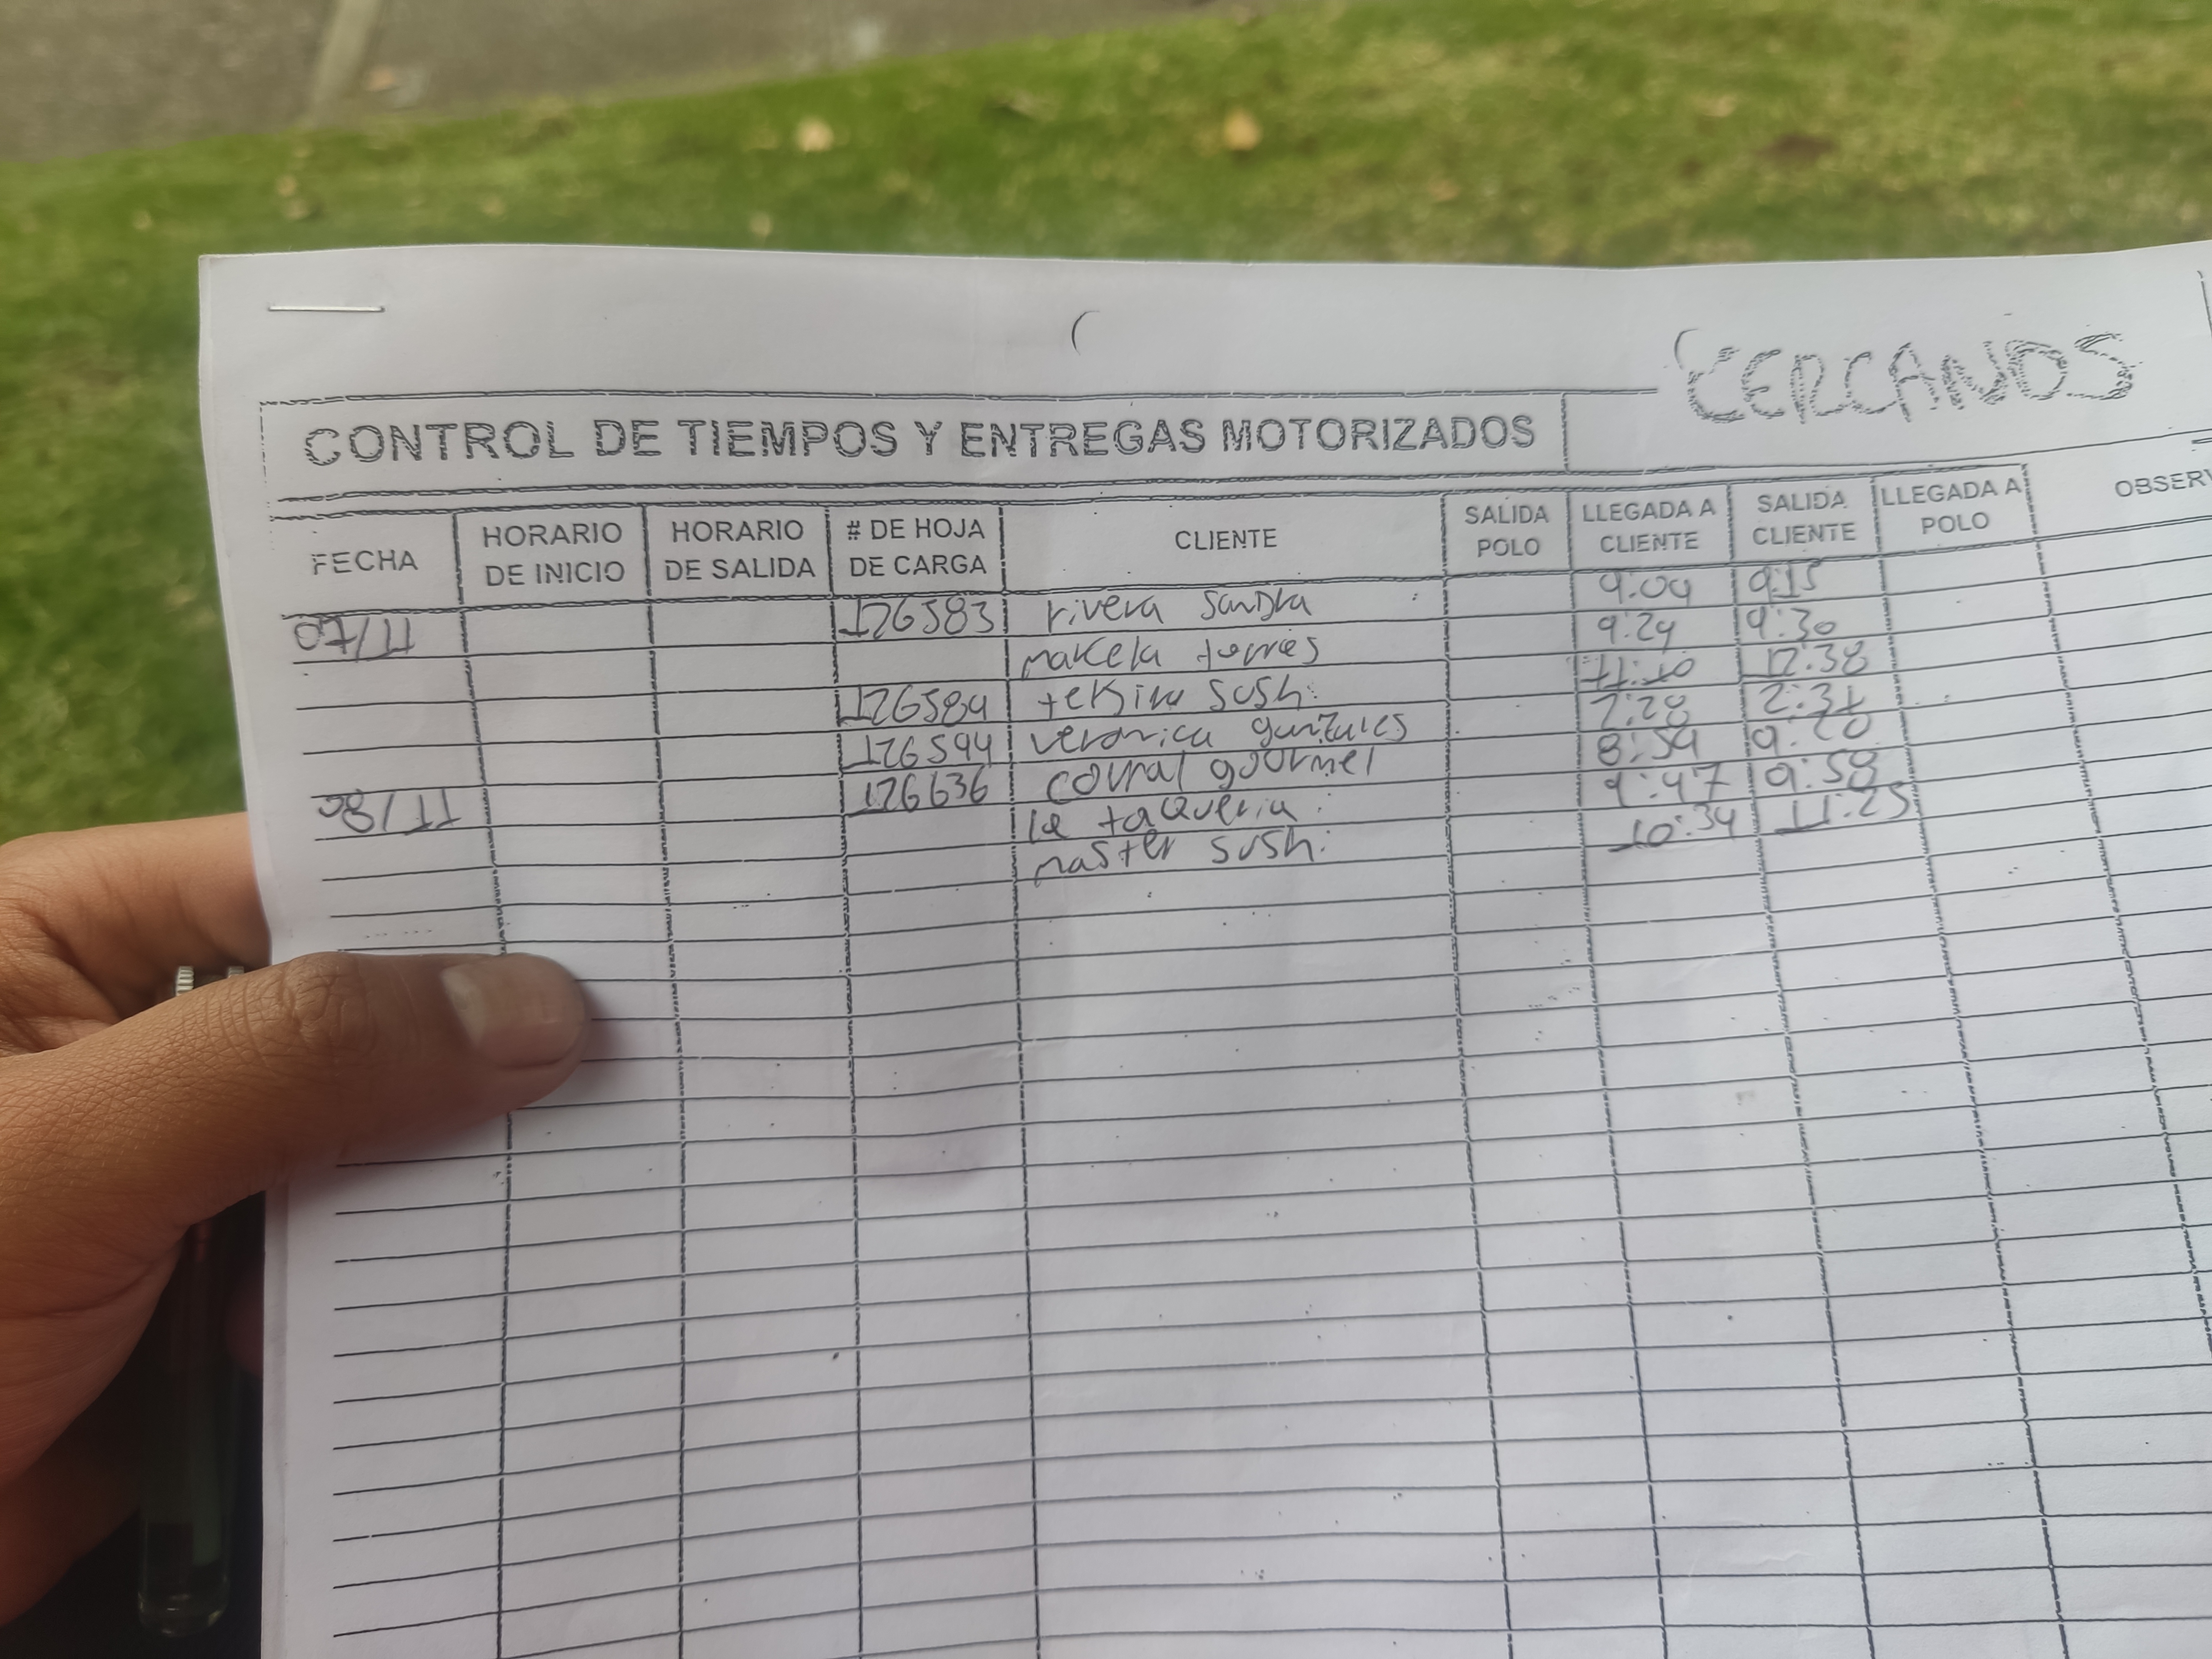 CERCANOS
CONTROL DE TIEMPOS Y ENTREGAS MOTORIZADOS
FECHA HORARIO DE INICIO HORARIO DE SALIDA # DE HOJA DE CARGA CLIENTE SALIDA POLO LLEGADA A CLIENTE SALIDA CLIENTE LLEGADA A POLO OBSERV
07/11 126583 rivera sandra 9:04 9:15
marcela torres 9:24 9:30
126584 tekiru sushi 11:10 12:38
126594 veronica gonzales 2:28 2:37
08/11 126636 corral gourmet 8:54 9:20
la taqueria 9:47 9:58
master sushi 10:34 11:25